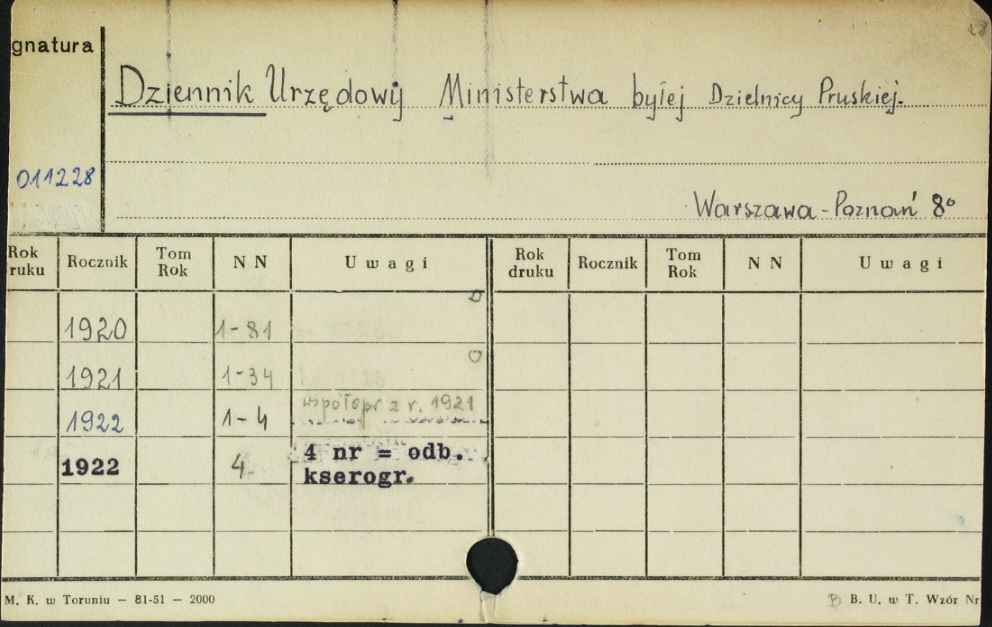 gnatura
Dziennik Urzędowy Ministerstwa byłej Dzielnicy Pruskiej.
011228
Warszawa - Poznań 8°
Rok ruku Rocznik Tom Rok N N Uwagi Rok druku Rocznik Tom Rok N N Uwagi
1920 1-81
1921 1-34
1922 1-4 współopr z r. 1921
1922 4 4 nr = odb.
kserogr.
M. K. w Toruniu — 81-51 — 2000 B. U. w T. Wzór Nr